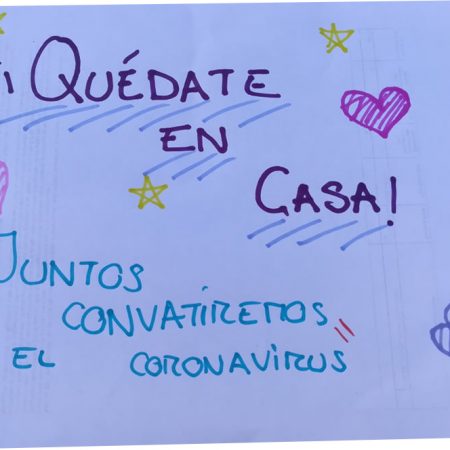 ¡QUÉDATE
EN
CASA!
JUNTOS
CONVATIREMOS
EL CORONAVIRUS"